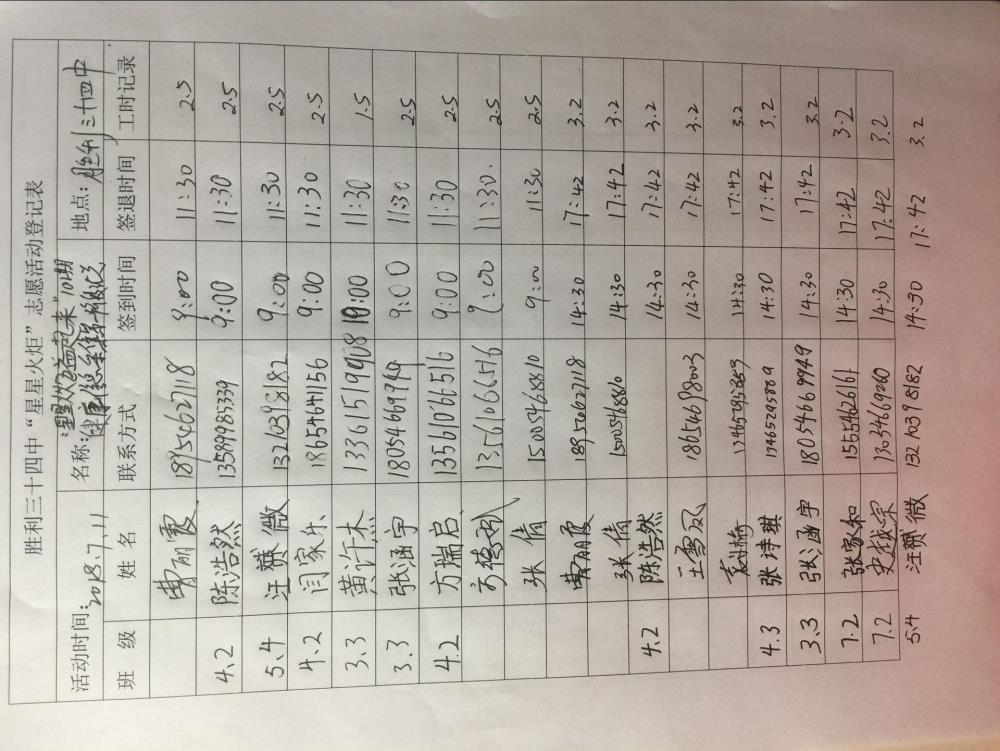 胜利三十四中“星星火炬”志愿活动登记表
活动时间：2018.7.11 名称： 地点：胜利三十四中
班 级 姓 名 联系方式 签到时间 签退时间 工时记录
曹丽霞 18954627118 9:00 11:30 2.5
4.2 陈浩然 13589985339 9:00 11:30 2.5
5.4 汪赟薇 13210398182 9:00 11:30 2.5
4.2 闫家乐 18654641156 9:00 11:30 2.5
3.3 黄许杰 13361519968 10:00 11:30 1.5
3.3 张涵宇 18054669949 9:00 11:30 2.5
4.2 方瑞启 13561066516 9:00 11:30 2.5
13561066516 9:00 11:30 2.5
张倩 15005468810 9:00 11:30 2.5
曹丽霞 18954627118 14:30 17:42 3.2
张倩 14:30 17:42 3.2
4.2 陈浩然 14:30 17:42 3.2
王雪凤 18654698003 14:30 17:42 3.2
14:30 17:42 3.2
4.3 张诗琪 14:30 17:42 3.2
3.3 张涵宇 18054669949 14:30 17:42 3.2
7.2 张家和 14:30 17:42 3.2
7.2 14:30 17:42 3.2
5.4 汪赟薇 13210398182 14:30 17:42 3.2